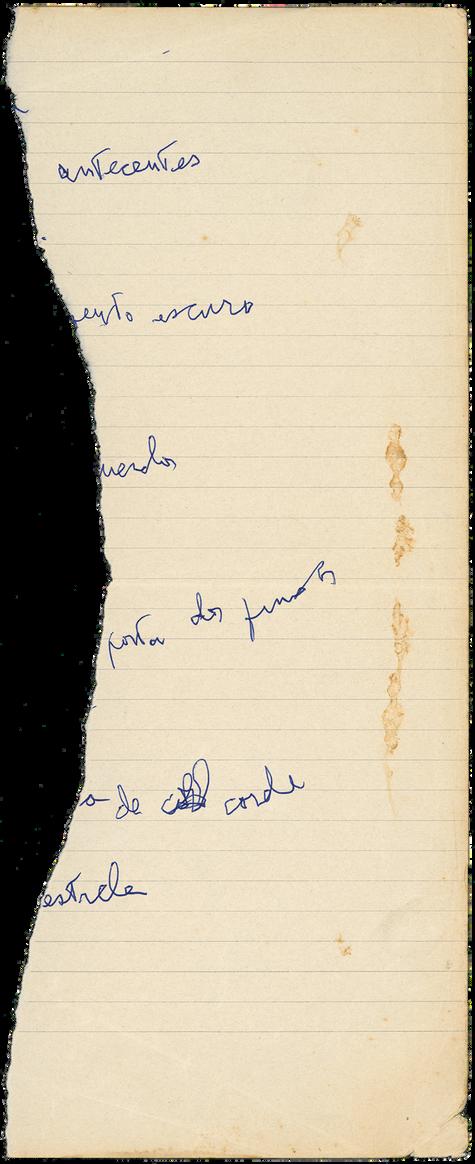 antecentes
ento escuro
uerdos
porta dos fundos
a de corda
estrela